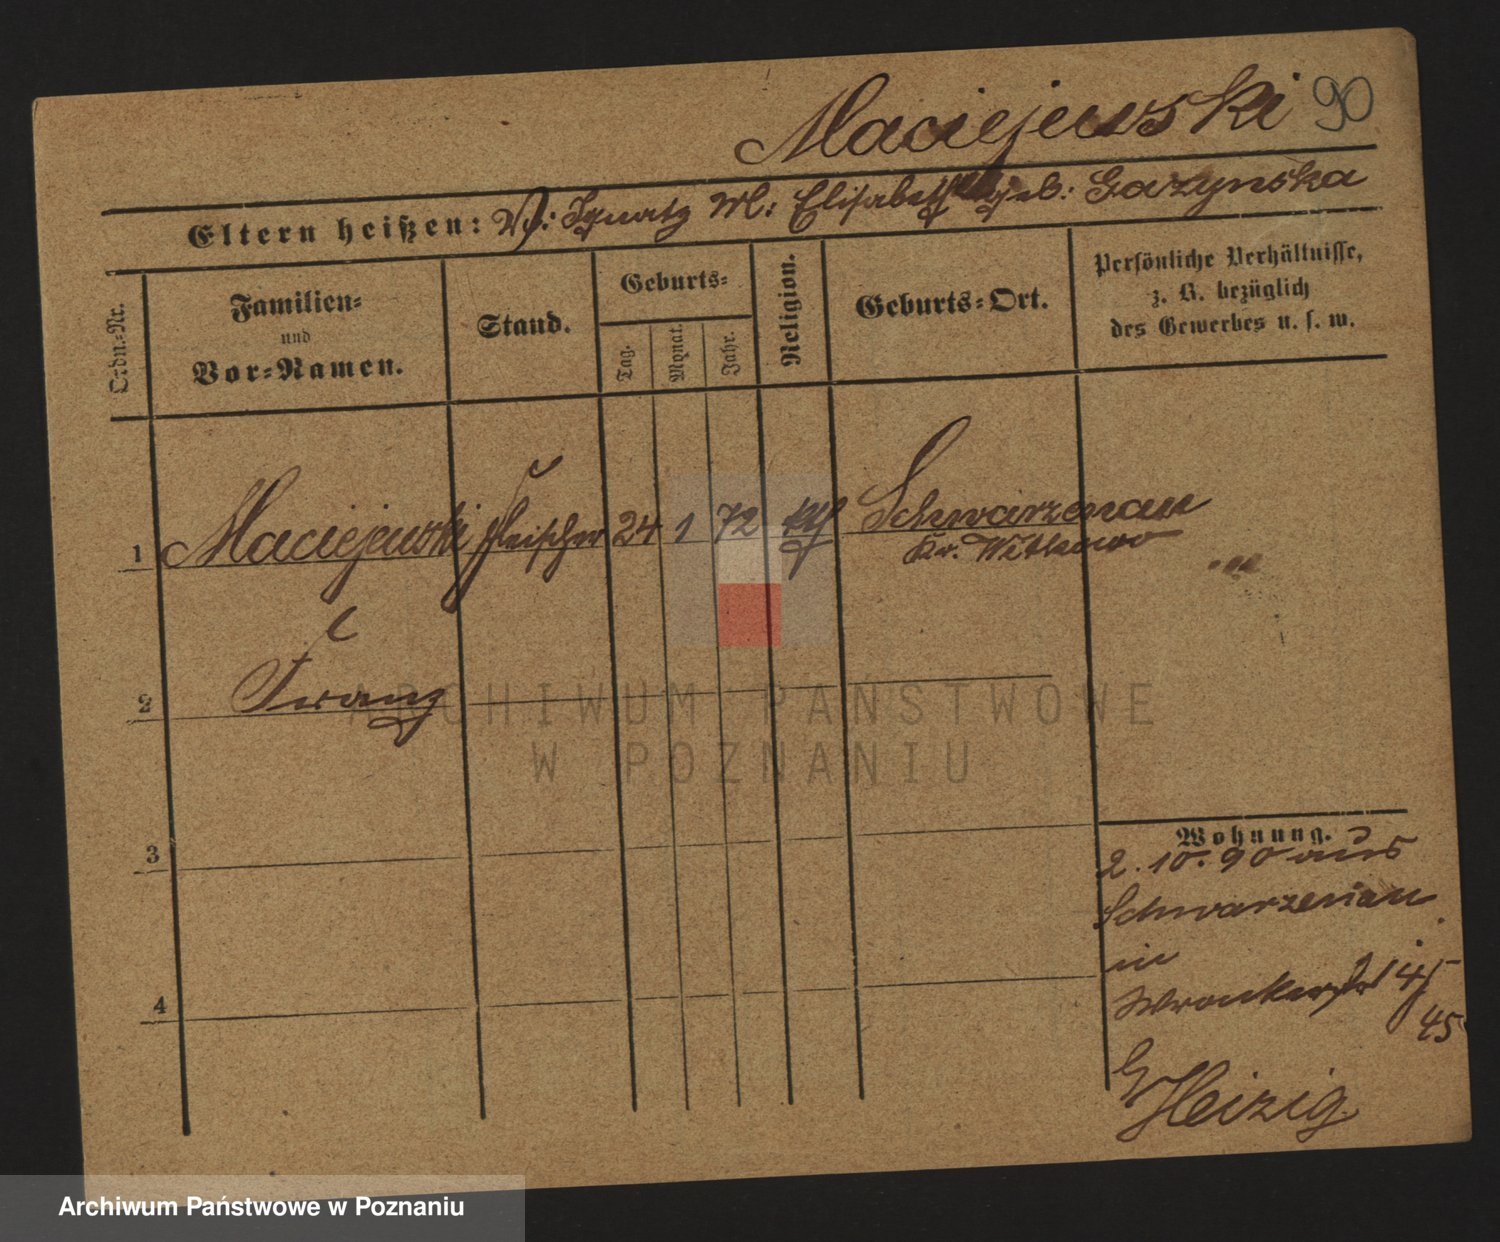 Maciejewski 90
Eltern heißen: V: Ignatz M: Elisabeth geb: Gazynska
Ordn.-Nr.
Familien-
und
Vor-Namen.
Stand.
Geburts-
Tag.
Monat.
Jahr.
Religion.
Geburts-Ort.
Persönliche Verhältnisse,
z. B. bezüglich
des Gewerbes u. s. w.
1 Maciejewski Fleischer 24 1 72 kth Schwarzenau
Kr. Witkowo
2 Franz
3
4
Wohnung.
2. 10. 90 aus
Schwarzenau
in
Wronkerstr 45
45
Heizig.
ARCHIWUM PAŃSTWOWE
W POZNANIU
Archiwum Państwowe w Poznaniu